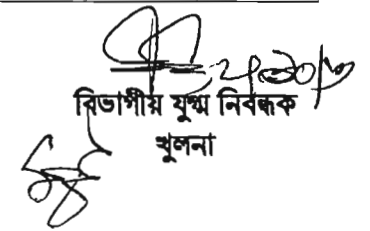 বিভাগীয় যুগ্ম নিবন্ধক
খুলনা